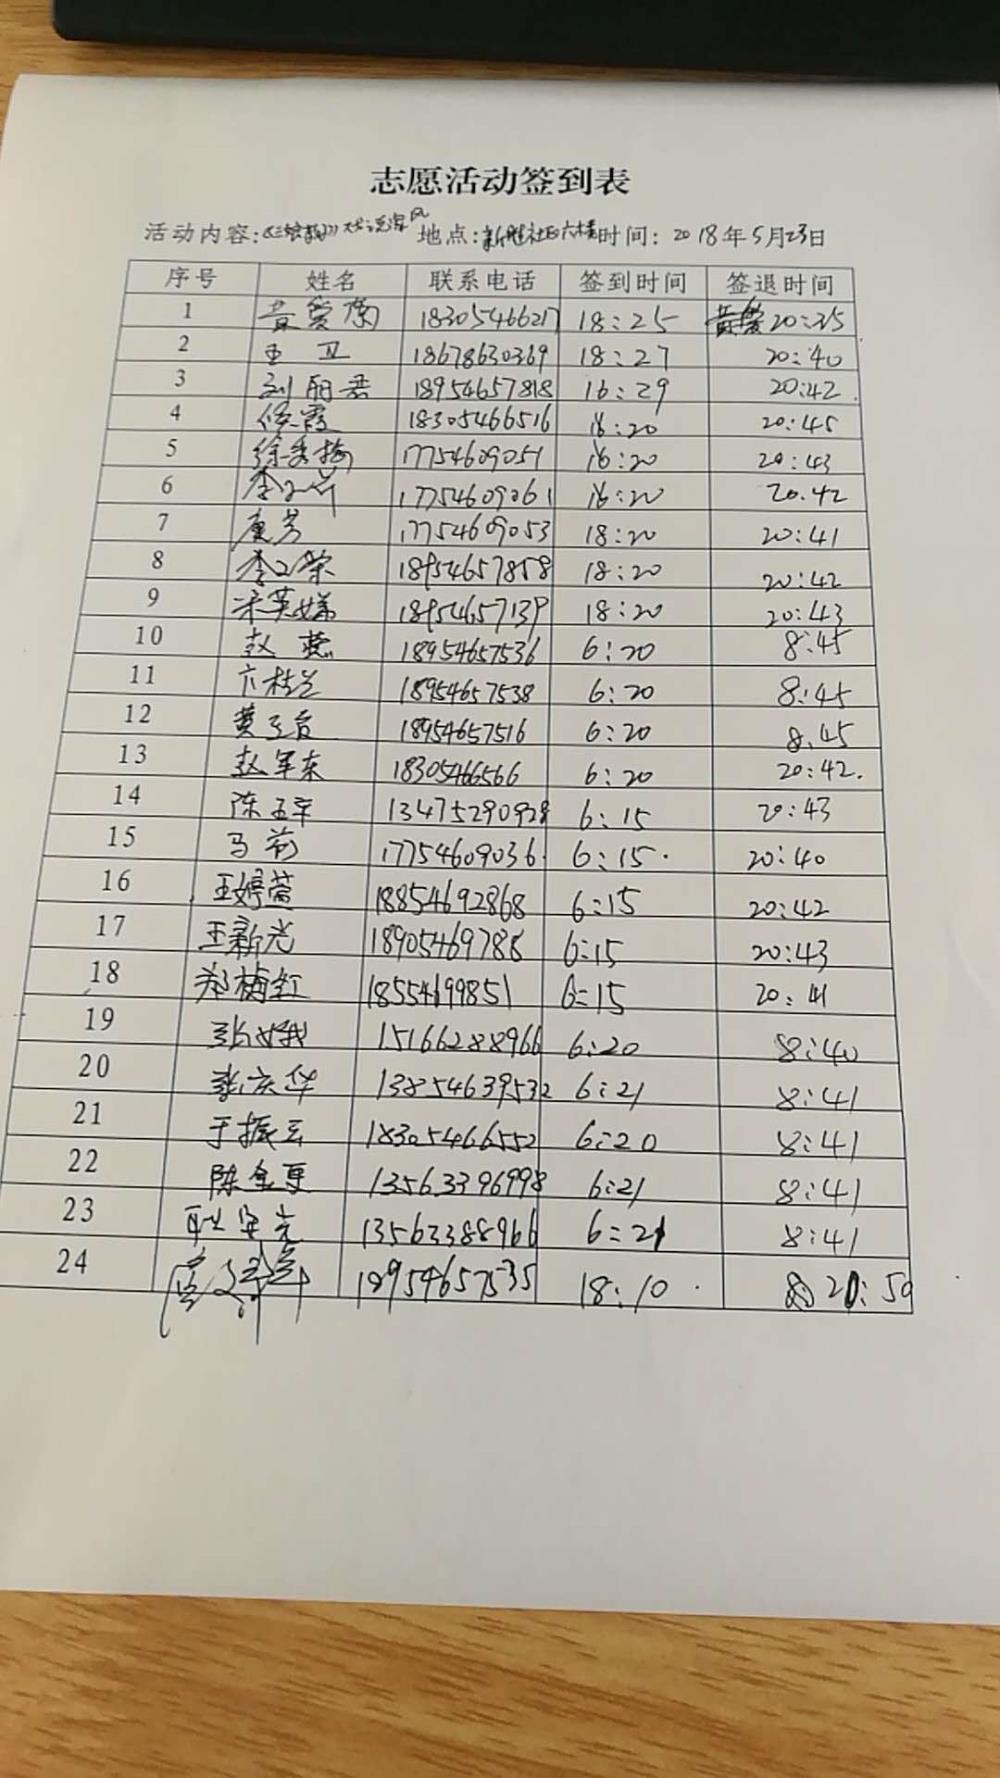 志愿活动签到表
活动内容: 地点: 新 社区六楼 时间: 2018年5月23日
序号 姓名 联系电话 签到时间 签退时间
1 黄爱菊 18305466217 18:25 20:35
2 王卫 18678630369 18:27 20:40
3 刘丽君 18954657818 16:29 20:42
4 徐霞 18305466516 18:20 20:45
5 徐秀梅 17754609051 18:20 20:43
6 17754609061 18:20 20:42
7 唐芳 17754609053 18:20 20:41
8 18954657858 18:20 20:42
9 宋英娣 18954657139 18:20 20:43
10 赵燕 18954657536 6:20 8:45
11 卞桂兰 18954657538 6:20 8:45
12 黄玉启 18954657516 6:20 8.45
13 赵军东 18305466566 6:20 20:42.
14 陈玉军 13475290928 6:15 20:43
15 马菊 17754609036. 6:15. 20:40
16 王婷萱 18854692868 6:15 20:42
17 王新光 18905469788 6:15 20:43
18 郑梅红 18554699851 6:15 20:41
19 15166288966 6:20 8:40
20 张庆华 13854639532 6:21 8:41
21 于振云 18305466552 6:20 8:41
22 陈金更 13563396998 6:21 8:41
23 耿安光 13562388966 6:21 8:41
24 18954657535 18:10 20:50